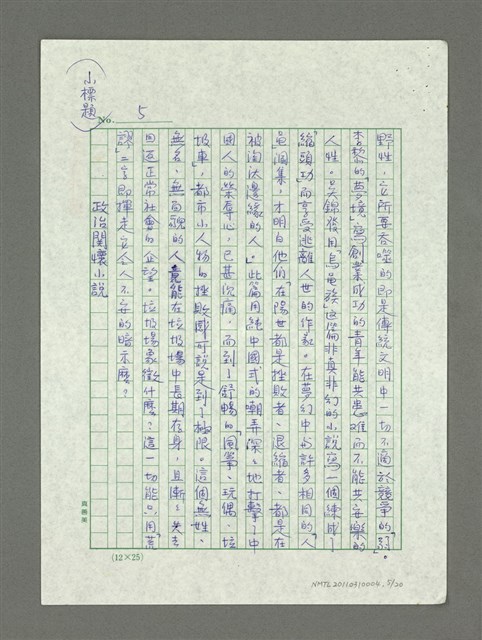 野性，它所要吞噬的即是傳統文明中一切不適於競爭的「弱」。
李黎的「夢境」寫創業成功的青年能共患難而不能共安樂的
人性。吳錦發用烏龜族這篇非真非幻的小說寫一個練成了
「縮頭功」而享受逃離人世的作家。在夢幻中與許多相同的「人」
龜調集，才明白他們「在陽世都是挫敗者、退縮者、都是在
被淘汰邊緣的人。」此篇用純中國式的嘲弄深深地打擊了中
國人的榮辱心，已甚沉痛。而到了舒暢的「風箏、玩偶、垃
圾車」，都市小人物的挫敗感可說是到了極限。這個無姓、
無名、無面貌的人竟能在垃圾場中長期存身，且漸漸失去
回返正常社會的企望。垃圾場象徵什麼？這一切能只用「荒
謬」二字即揮走它令人不安的暗示麼？
政治關懷小說
（小標題）
No. 5
(12×25)
NMTL20110310004. 5/20